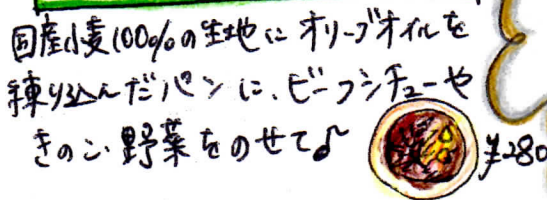 国産小麦100%の生地にオリーブオイルを
練り込んだパンに、ビーフシチューや
きのこ・野菜をのせて♪
¥280